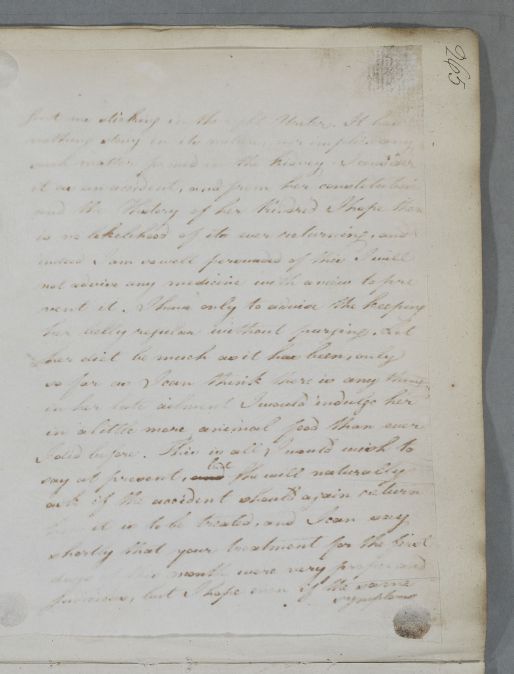 265
me sticking in the right Ureter. It has
nothing stony in its nature, nor implies any
such matter found in the kidney, I consider
it as an accident, and from her constitution
and the History of her Kindred I hope there
is no likelihood of its ever returning, and
indeed I am so well perswaded of this I will
not advise any medicine with a view to pre
vent it. I have only to advise the keeping
her belly regular without purging. Let
her diet be much as it has been, only
so far as I can think there is any thing
in her late ailment I would indulge her
in a little more animal food than ever
I did before. This is all I would wish to
say at present, but she will naturally
ask if the accident should again return
how it is to be treated, and I can say
shortly that your treatment for the first
days of this month were very proper and
judicious, but I hope even if the same
symptoms